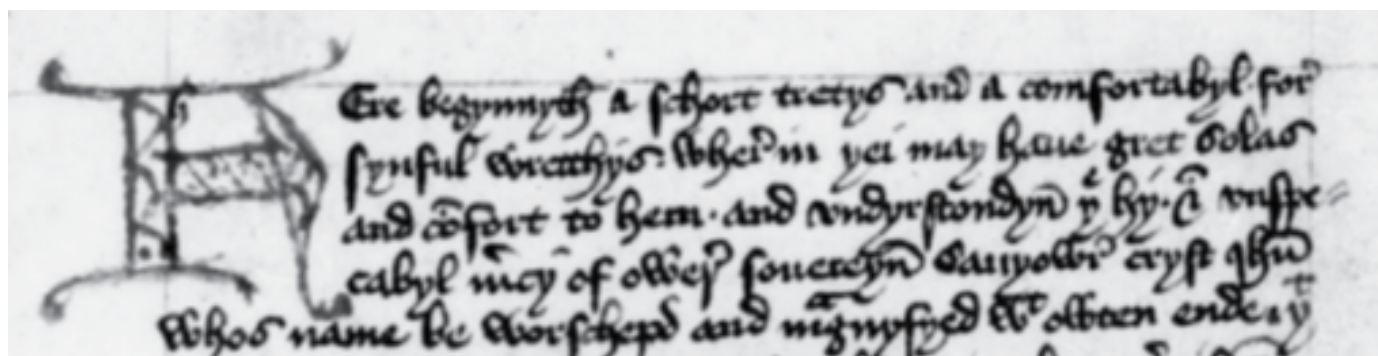 HEre begynnyth a schort tretys and a comfortabyl for
synful wrecchys. wher in þei may haue gret solas
and cōfort to hem. and vndyrstondyn þe hy. & vnspe=
cabyl mcy of ower souereyn Sauyowr cryst ihu
whos name be worschepd and magnyfyed wt owten ende.